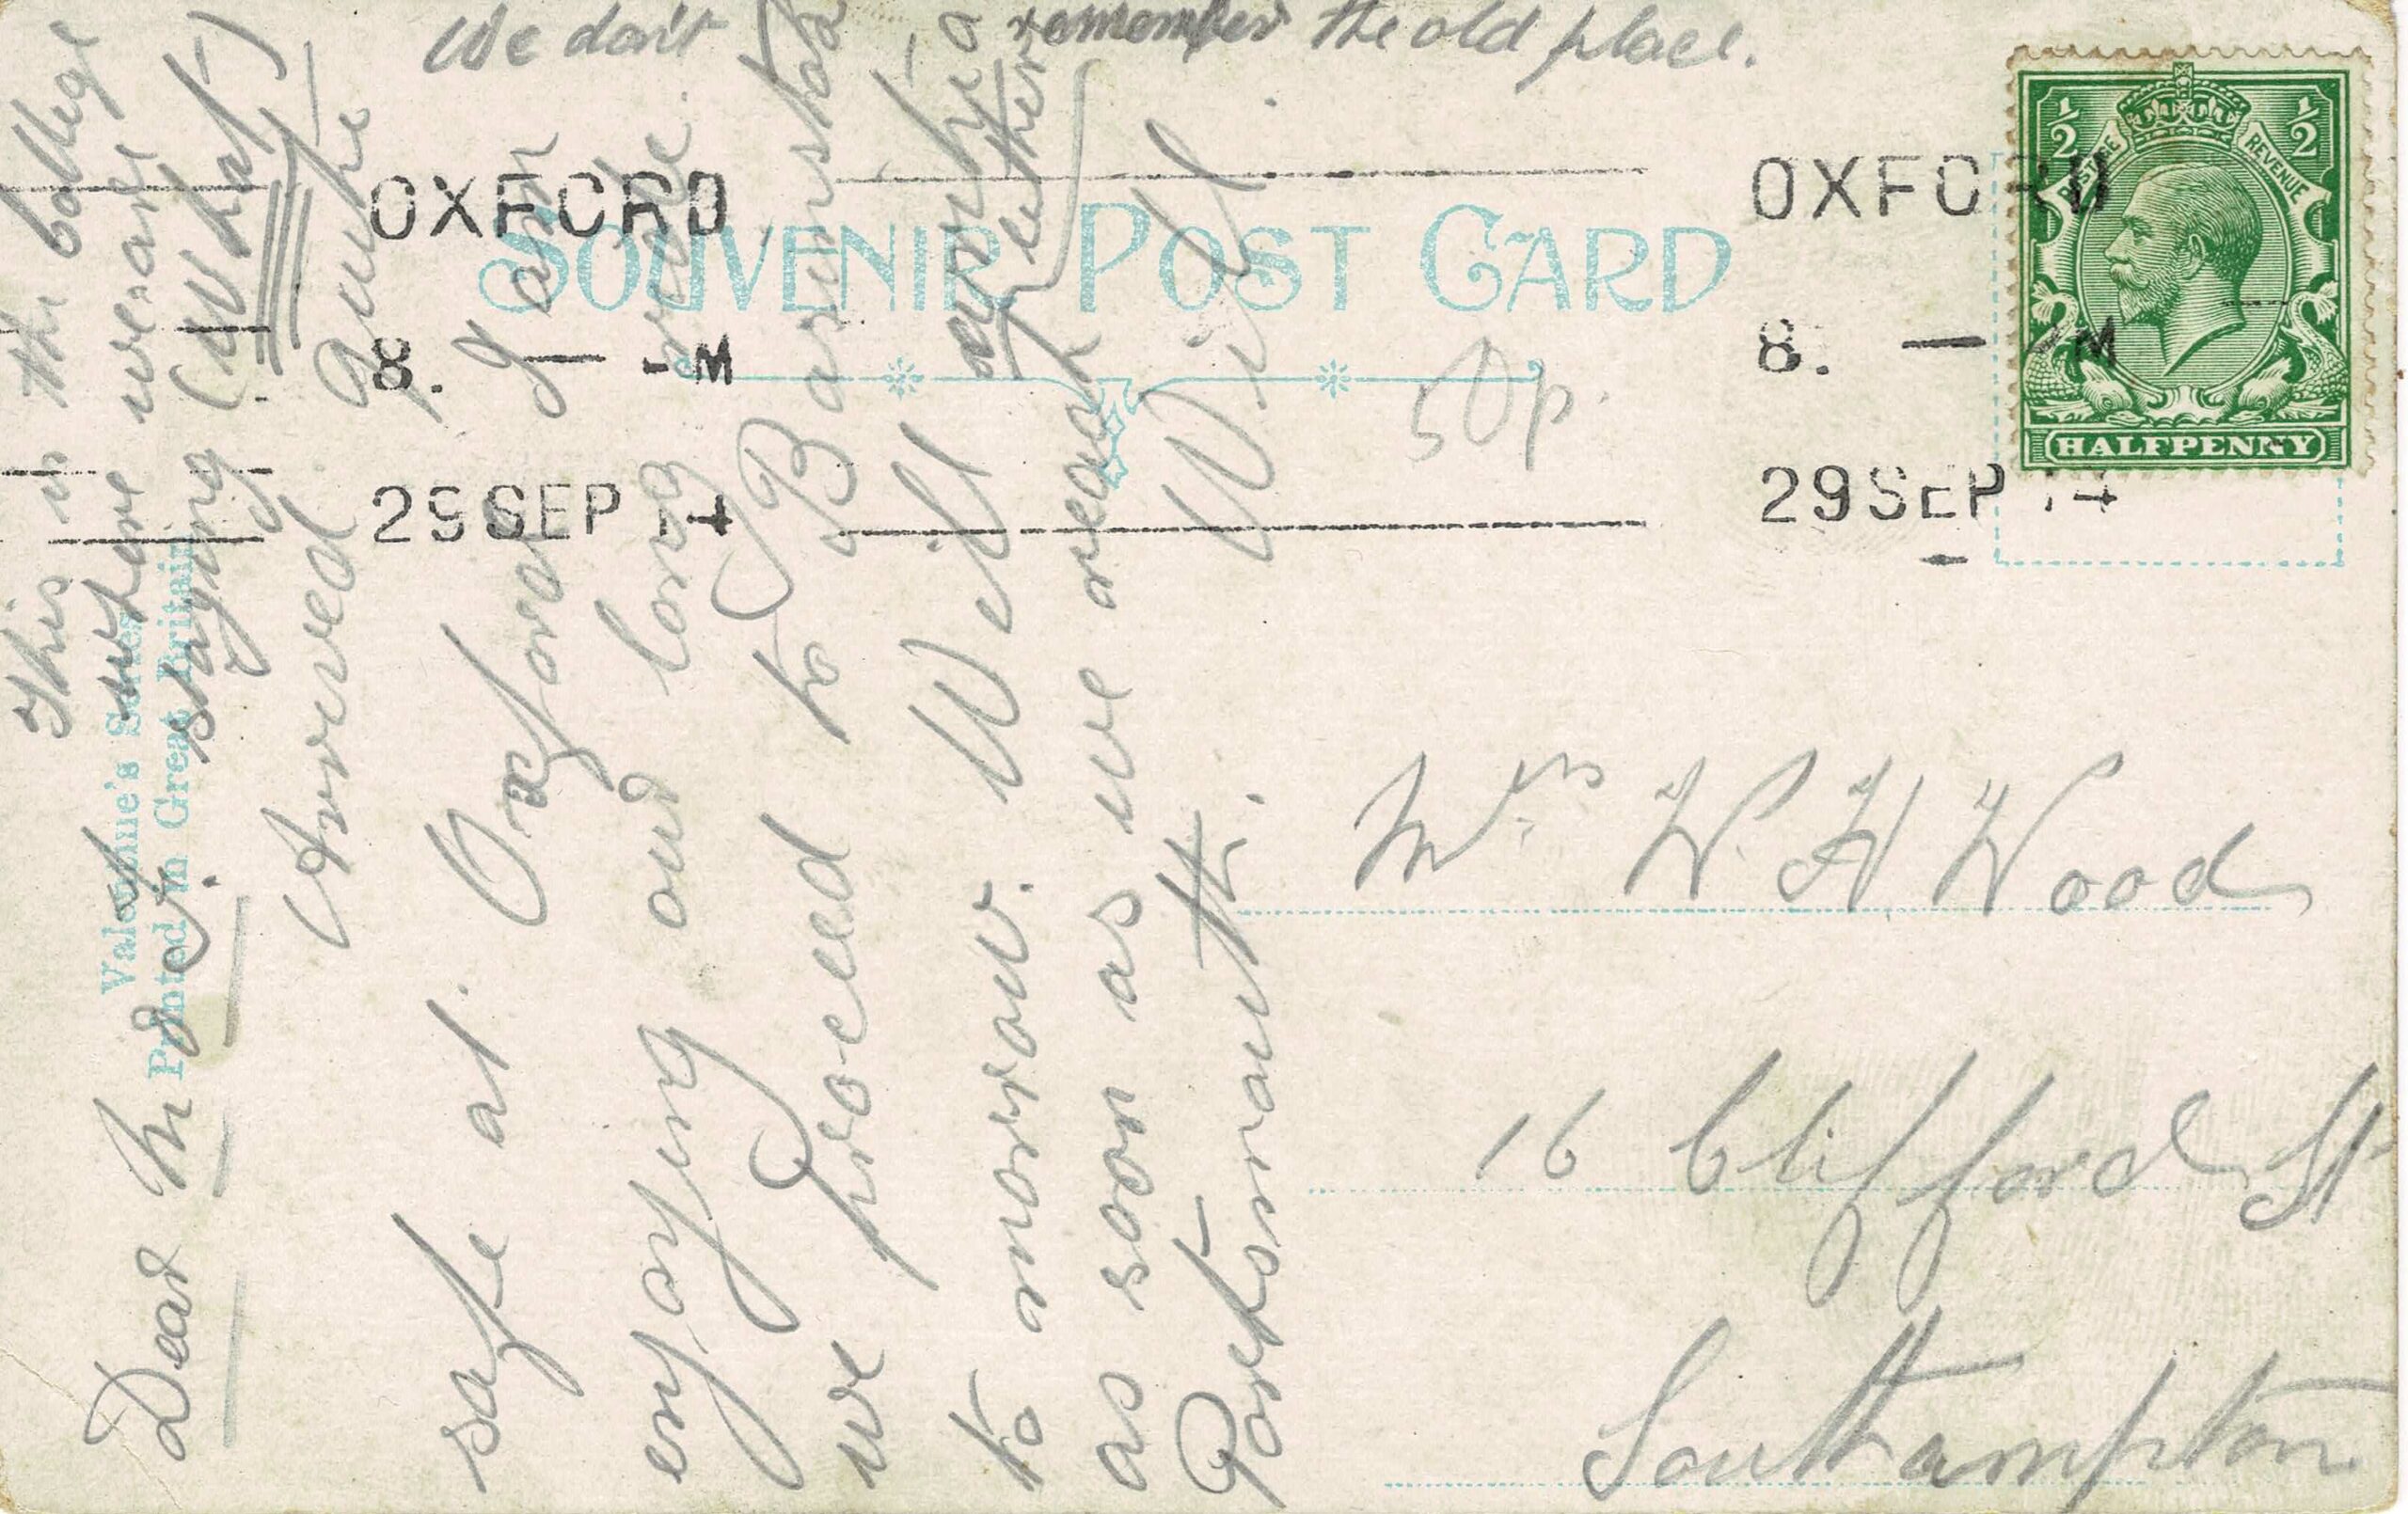 We don't remember the old place.
This is the College
where we are
staying (What)
SOUVENIR POST CARD
OXFORD
8. — M
29 SEP 14
OXFORD
8. — M
29 SEP 14
½ ½
POSTAGE REVENUE
HALFPENNY
Valentine's Series
Printed in Great Britain
50p.
Dear M & F.
Arrived quite
safe at Oxford I am
enjoying our long ride.
we proceed to Barnsta
to morrow. Will write a
letter
as soon as we reach
Portsmouth. Wilf.
Mrs W H Wood
16 Clifford St
Southampton